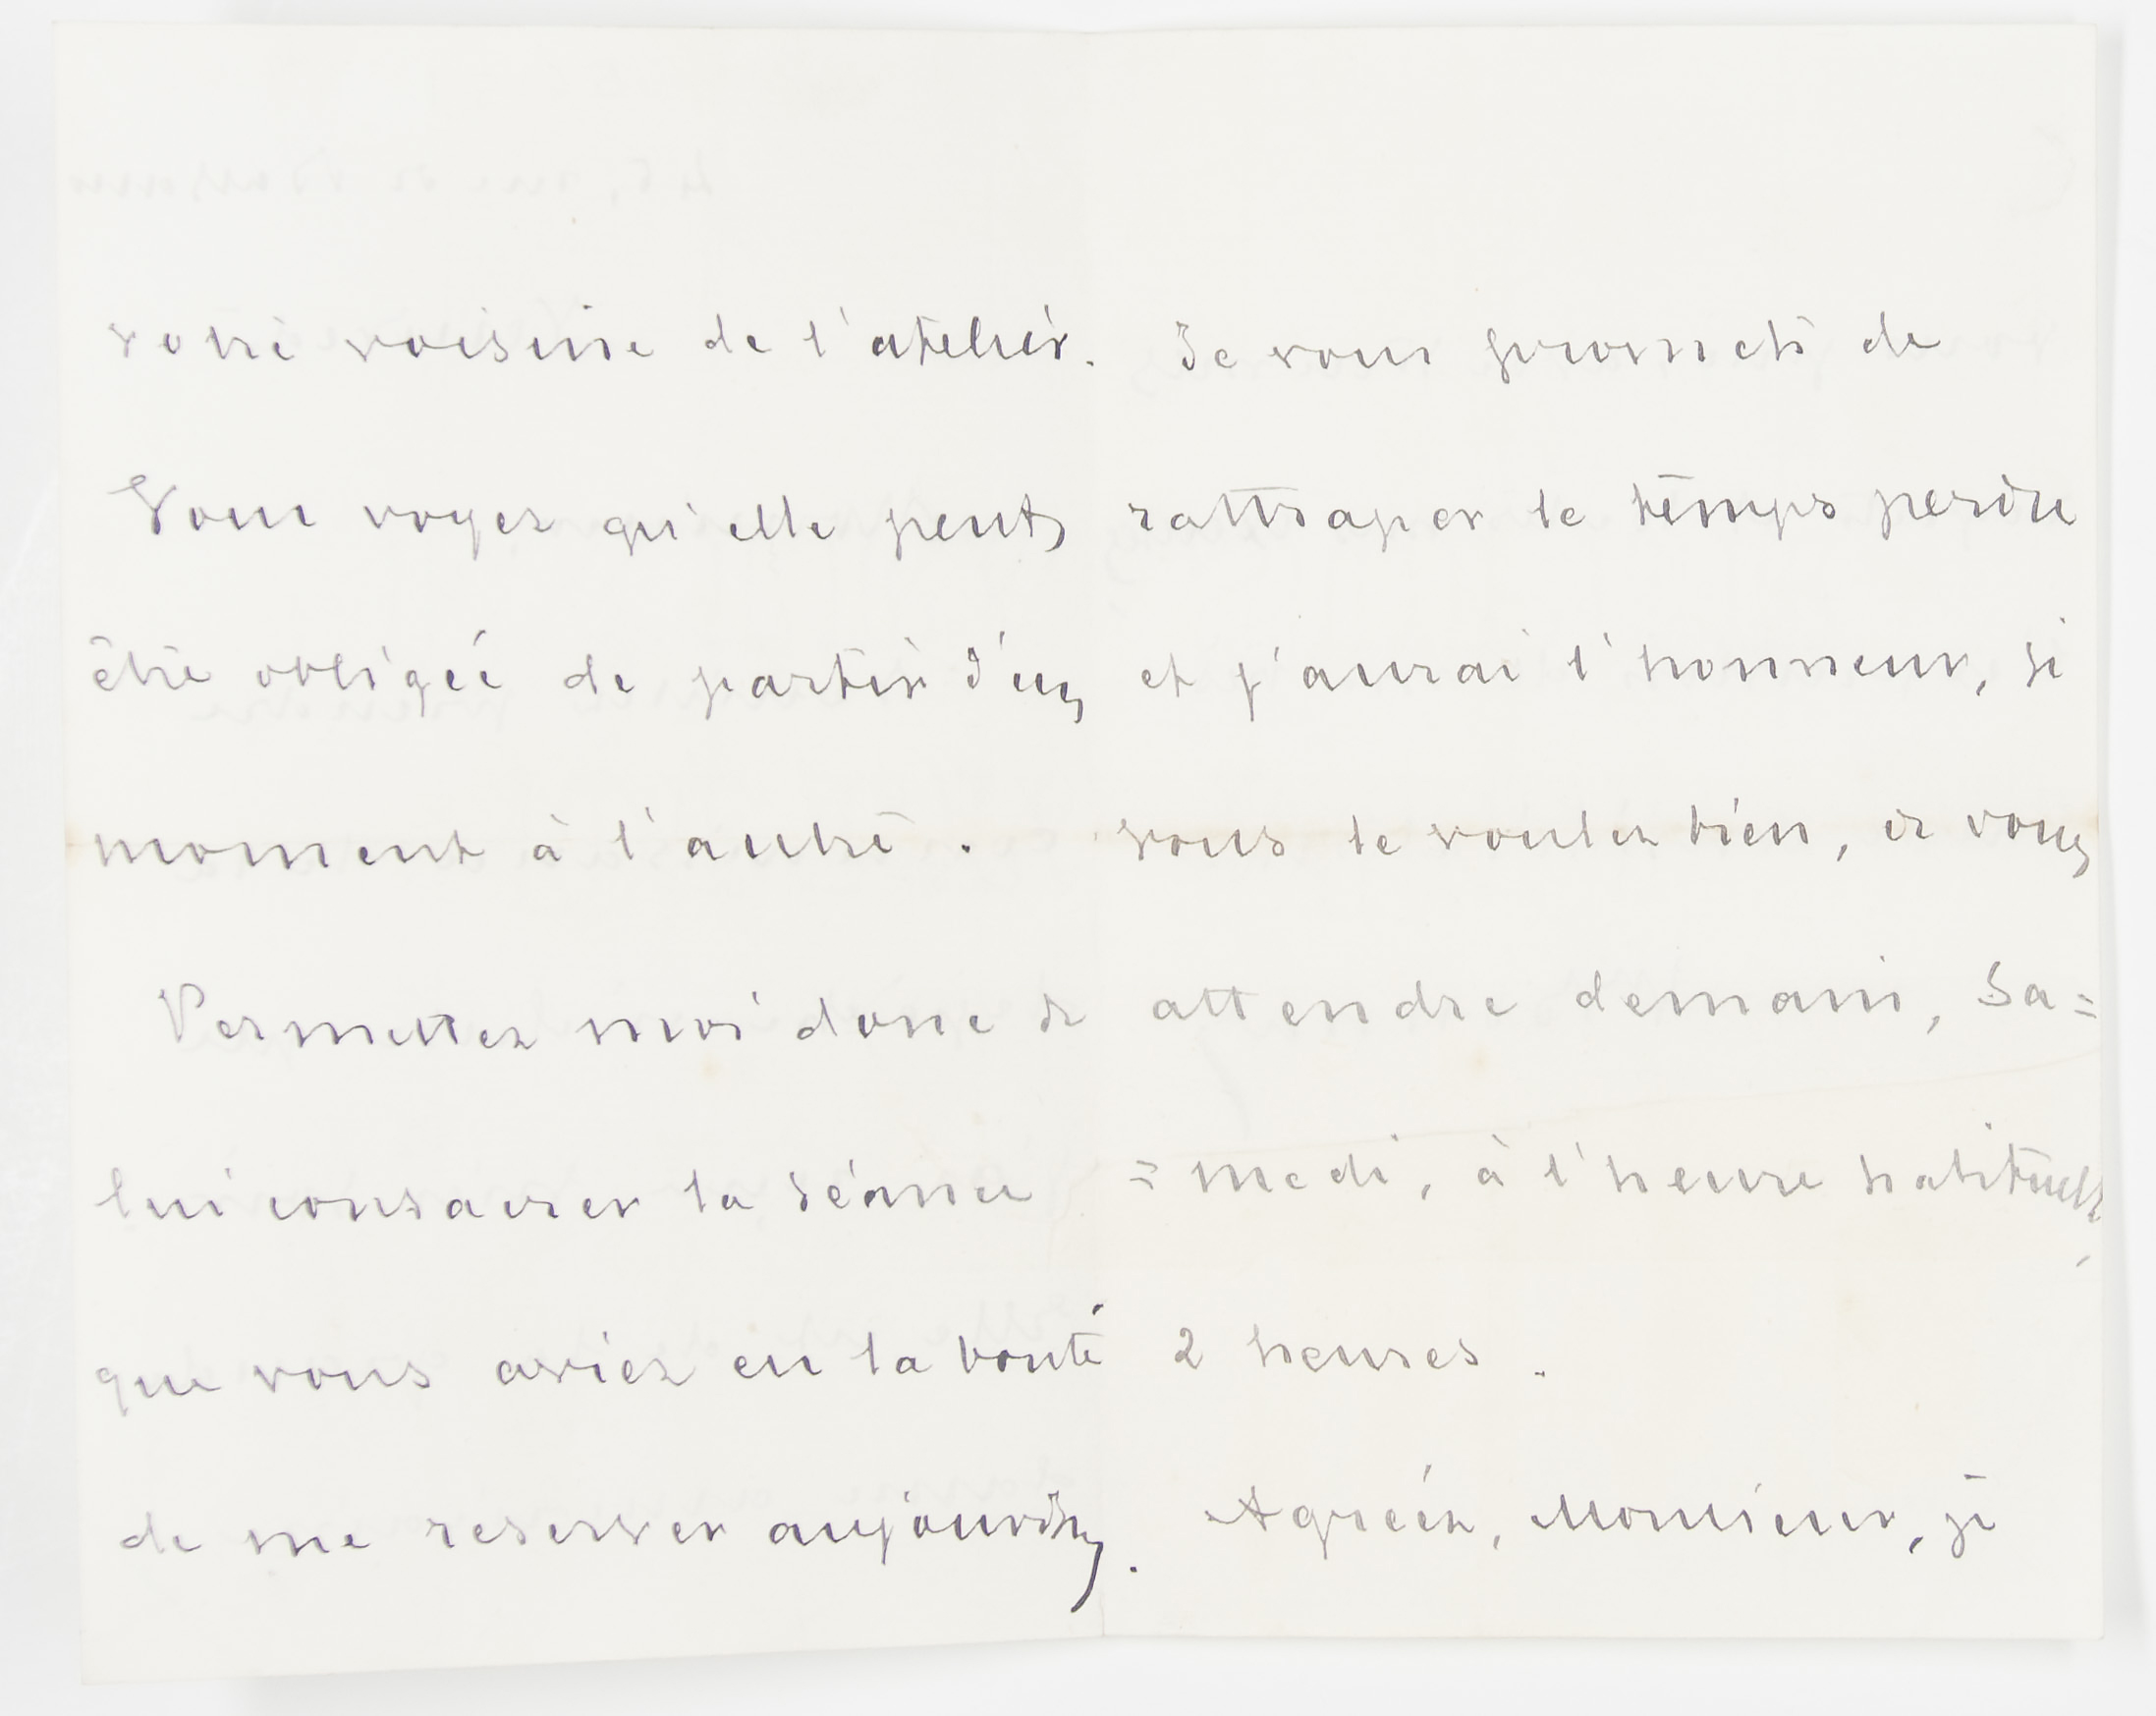 votre voisine de l'atelier.
Vous voyez qu'elle peut
être obligée de partir d'un
moment à l'autre.
Permettez moi donc de
lui consacrer la séance
que vous aviez eu la bonté
de me réserver aujourd'hui.
Je vous promets de
rattraper le temps perdu
et j'aurai l'honneur, si
vous le voulez bien, de vous
attendre demain, Sa=
=medi, à l'heure habituelle,
2 heures.
Agréez, Monsieur, je